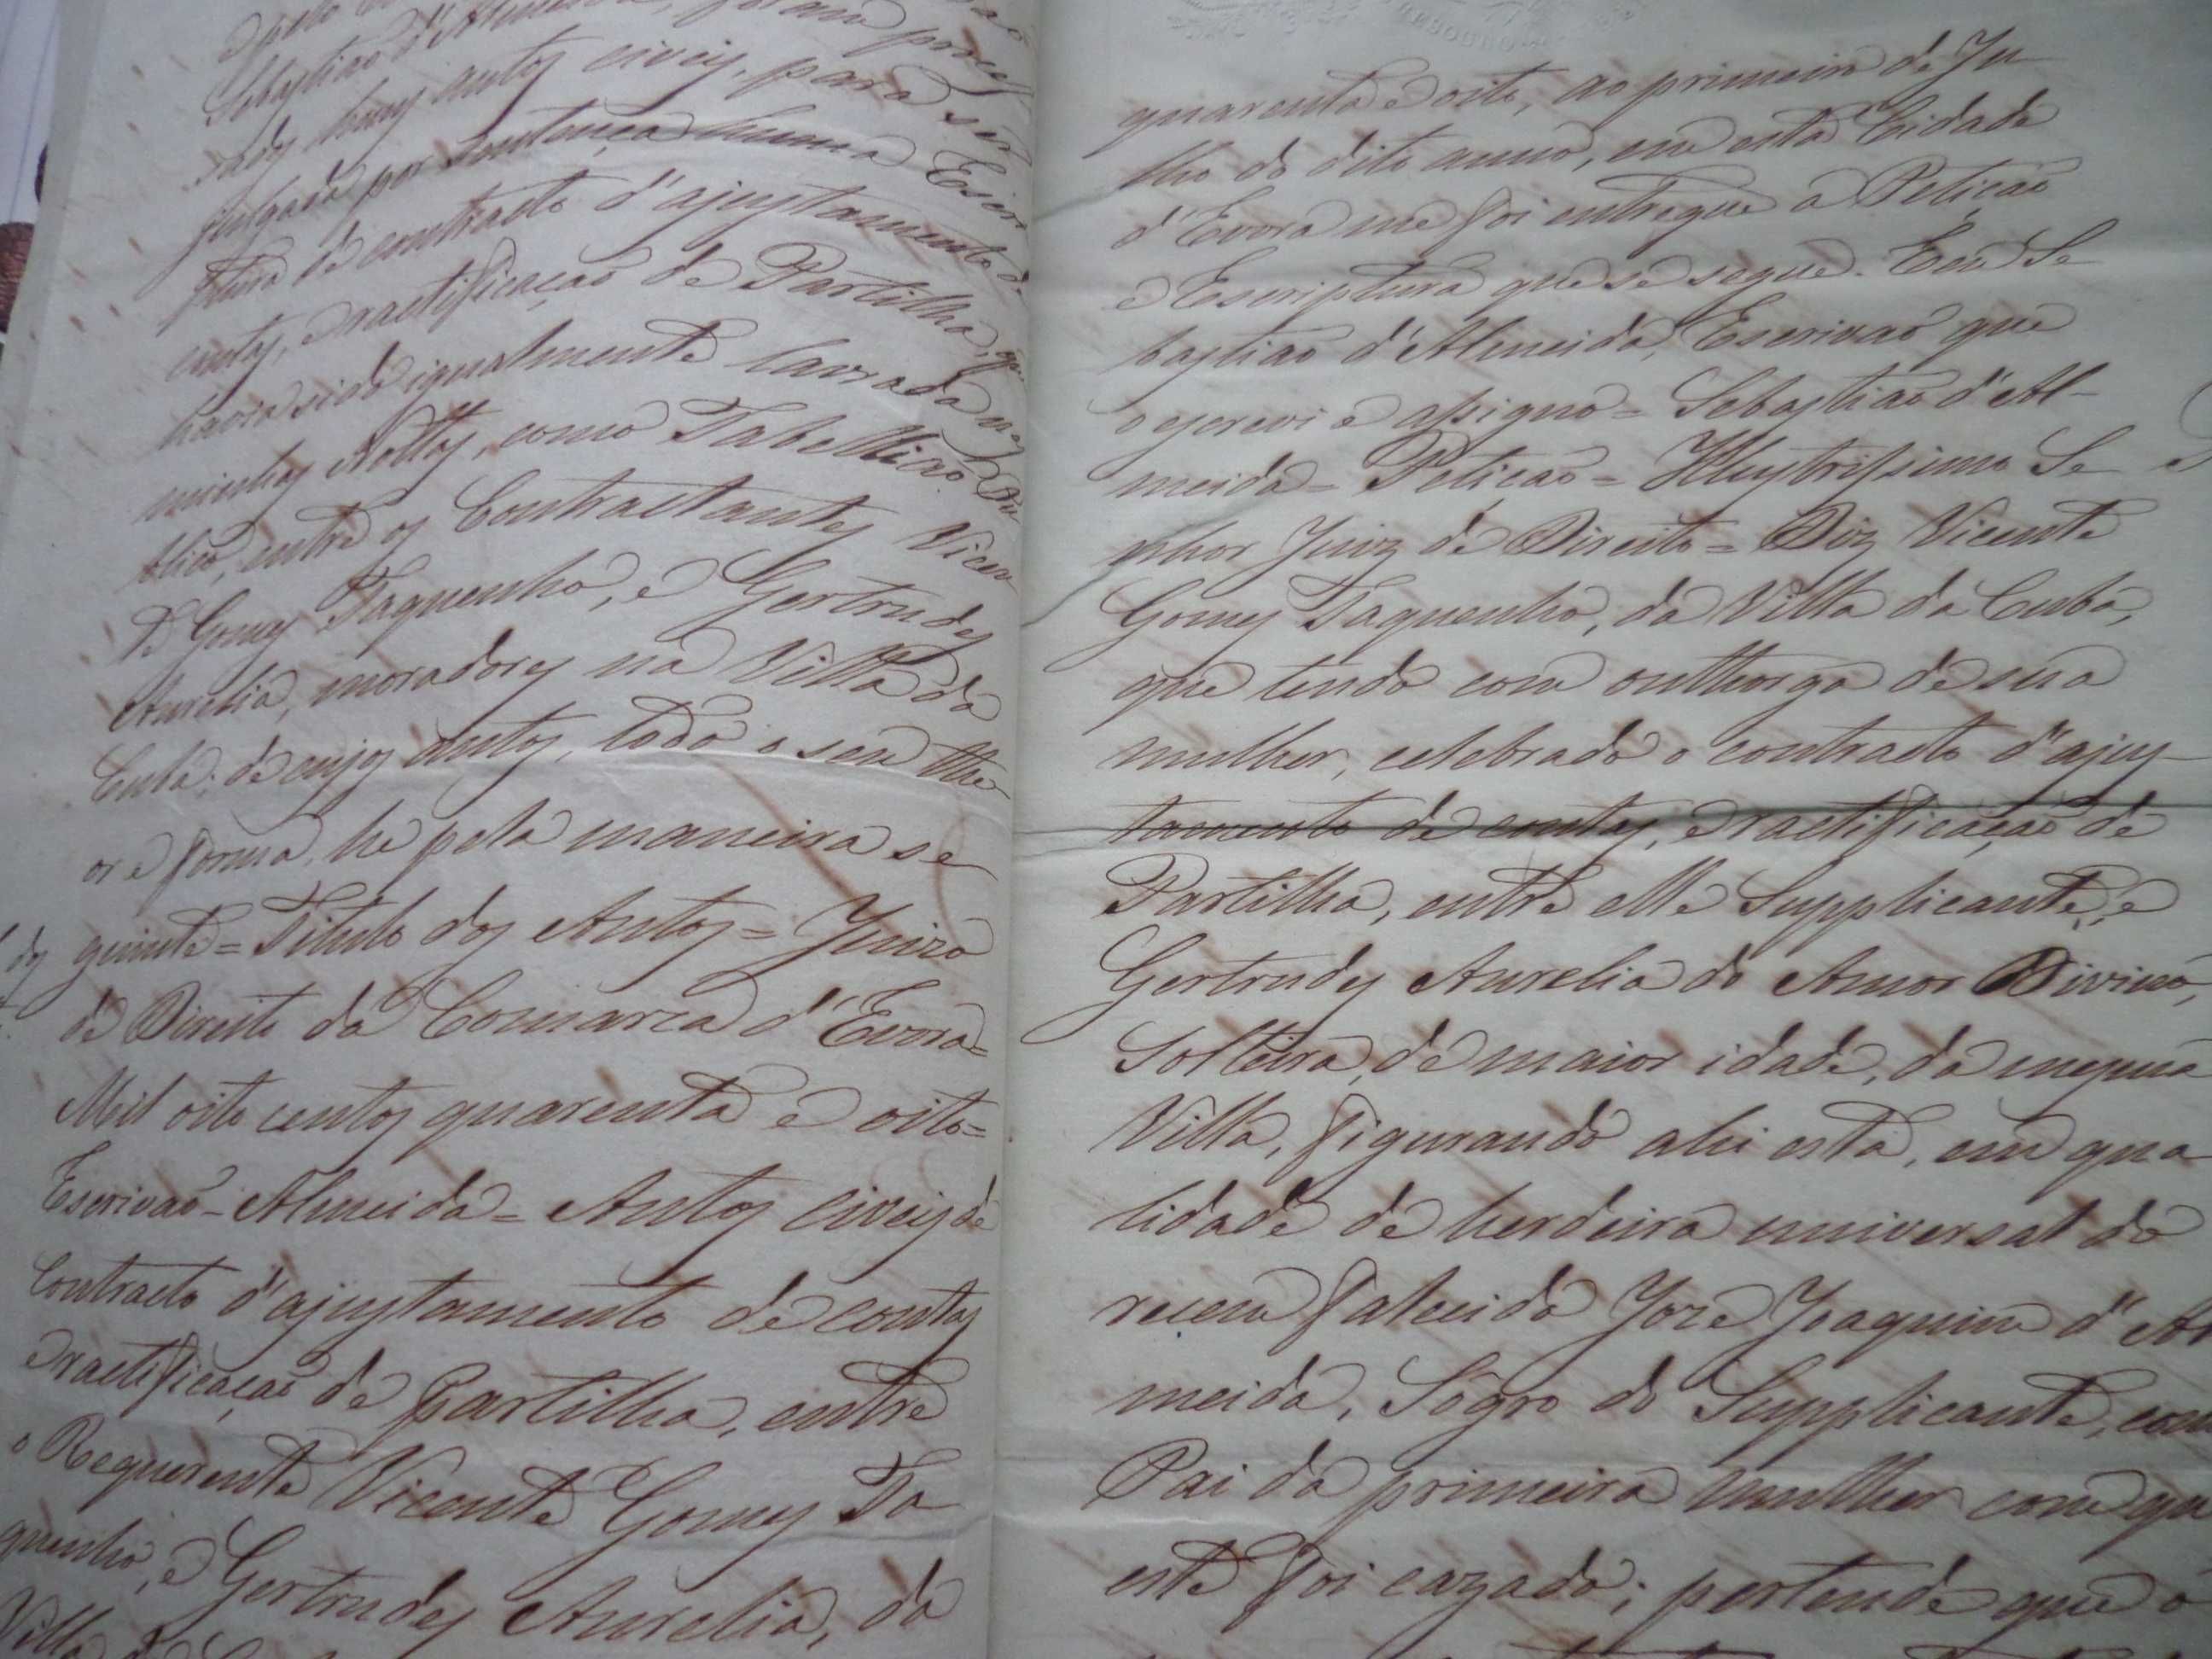 Sebastiaõ d'Almeida, foram proces
sados huns autos civeis, para ser
julgada por Sentença huma Escri
ptura de contracto d'ajustamento de
contas, e ractificaçaõ de Partilha, que
havia sido igualmente lavrada nas
minhas Nottas, como Tabelliaõ Pu
blico, entre os Contractantes Vicen
te Gomes Taquenho, e Gertrudes
Aurelia, moradores na Villa da
Cuba: de cujos autos, todo o seu the-
or e forma, he pela maneira se
guinte = Titulo dos Autos = Juizo
de Direito da Comarca d'Evora =
Mil oito centos quarenta e oito =
Escrivaõ - Almeida = Autos civeis de
Contracto d'ajustamento de contas
e ractificaçaõ de partilha, entre
o Requerente Vicente Gomes Ta
quenho, e Gertrudes Aurelia, da
Villa
quarenta e oito, ao primeiro de Ju-
lho do dito anno, em esta Cidade
d'Evora me foi entregue a Petiçaõ
e Escriptura que se segue. Eu Se-
bastiaõ d'Almeida, Escrivaõ que
o escrevi e assigno = Sebastiaõ d'Al-
meida = Petiçaõ = Illustrissimo Se-
nhor Juiz de Direito = Diz Vicente
Gomes Taquenho, da Villa da Cuba,
que tendo com outhorga de sua
mulher, celebrado o contracto d'ajus-
tamento de contas, e ractificaçaõ de
Partilha, entre elle Supplicante, e
Gertrudes Aurelia do Amor Divino,
Solteira, de maior idade, da mesma
Villa, figurando ahi esta, em qua
lidade de herdeira universal do
recem falecido Joze Joaquim d'Al
meida, Sôgro do Supplicante, como
Pai da primeira mulher com que
este foi cazado; pertende que o